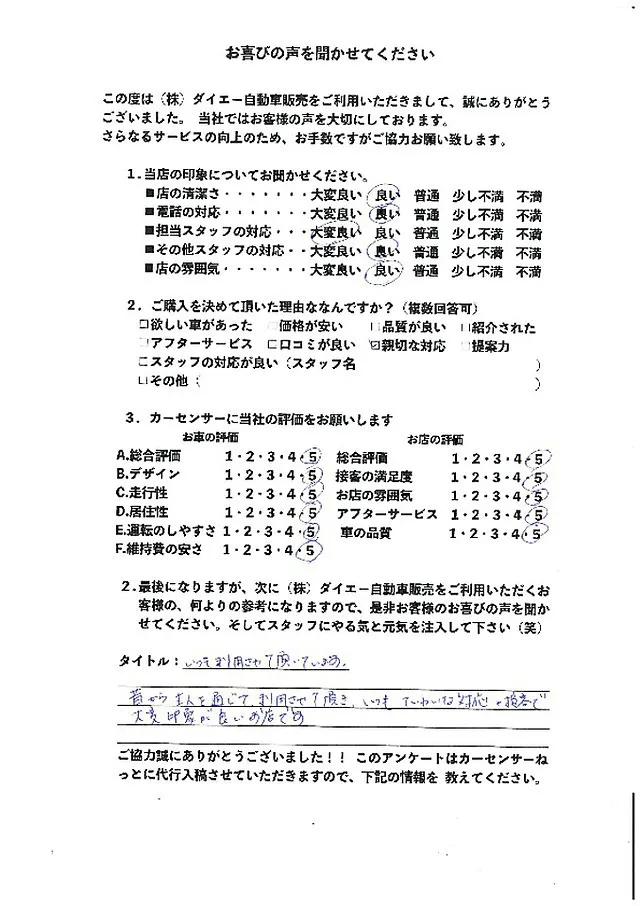 お喜びの声を聞かせてください
この度は（株）ダイエー自動車販売をご利用いただきまして、誠にありがとう
ございました。 当社ではお客様の声を大切にしております。
さらなるサービスの向上のため、お手数ですがご協力お願い致します。
1.当店の印象についてお聞かせください。
■店の清潔さ・・・・・・・大変良い 良い 普通 少し不満 不満
■電話の対応・・・・・・・大変良い 良い 普通 少し不満 不満
■担当スタッフの対応・・・大変良い 良い 普通 少し不満 不満
■その他スタッフの対応・・大変良い 良い 普通 少し不満 不満
■店の雰囲気・・・・・・・大変良い 良い 普通 少し不満 不満
2．ご購入を決めて頂いた理由ななんですか？（複数回答可）
□欲しい車があった □価格が安い □品質が良い □紹介された
□アフターサービス □口コミが良い ☑親切な対応 □提案力
□スタッフの対応が良い（スタッフ名 ）
□その他（ ）
3．カーセンサーに当社の評価をお願いします
お車の評価 お店の評価
A.総合評価 1・2・3・4・5 総合評価 1・2・3・4・5
B.デザイン 1・2・3・4・5 接客の満足度 1・2・3・4・5
C.走行性 1・2・3・4・5 お店の雰囲気 1・2・3・4・5
D.居住性 1・2・3・4・5 アフターサービス 1・2・3・4・5
E.運転のしやすさ 1・2・3・4・5 車の品質 1・2・3・4・5
F.維持費の安さ 1・2・3・4・5
2.最後になりますが、次に（株）ダイエー自動車販売をご利用いただくお
客様の、何よりの参考になりますので、是非お客様のお喜びの声を聞か
せてください。そしてスタッフにやる気と元気を注入して下さい（笑）
タイトル：いつも利用させて頂いています。
昔から主人を通じて利用させて頂き、いつもていねいな対応・接客で
大変印象が良いお店です
ご協力誠にありがとうございました！！ このアンケートはカーセンサーね
っとに代行入稿させていただきますので、下記の情報を 教えてください。